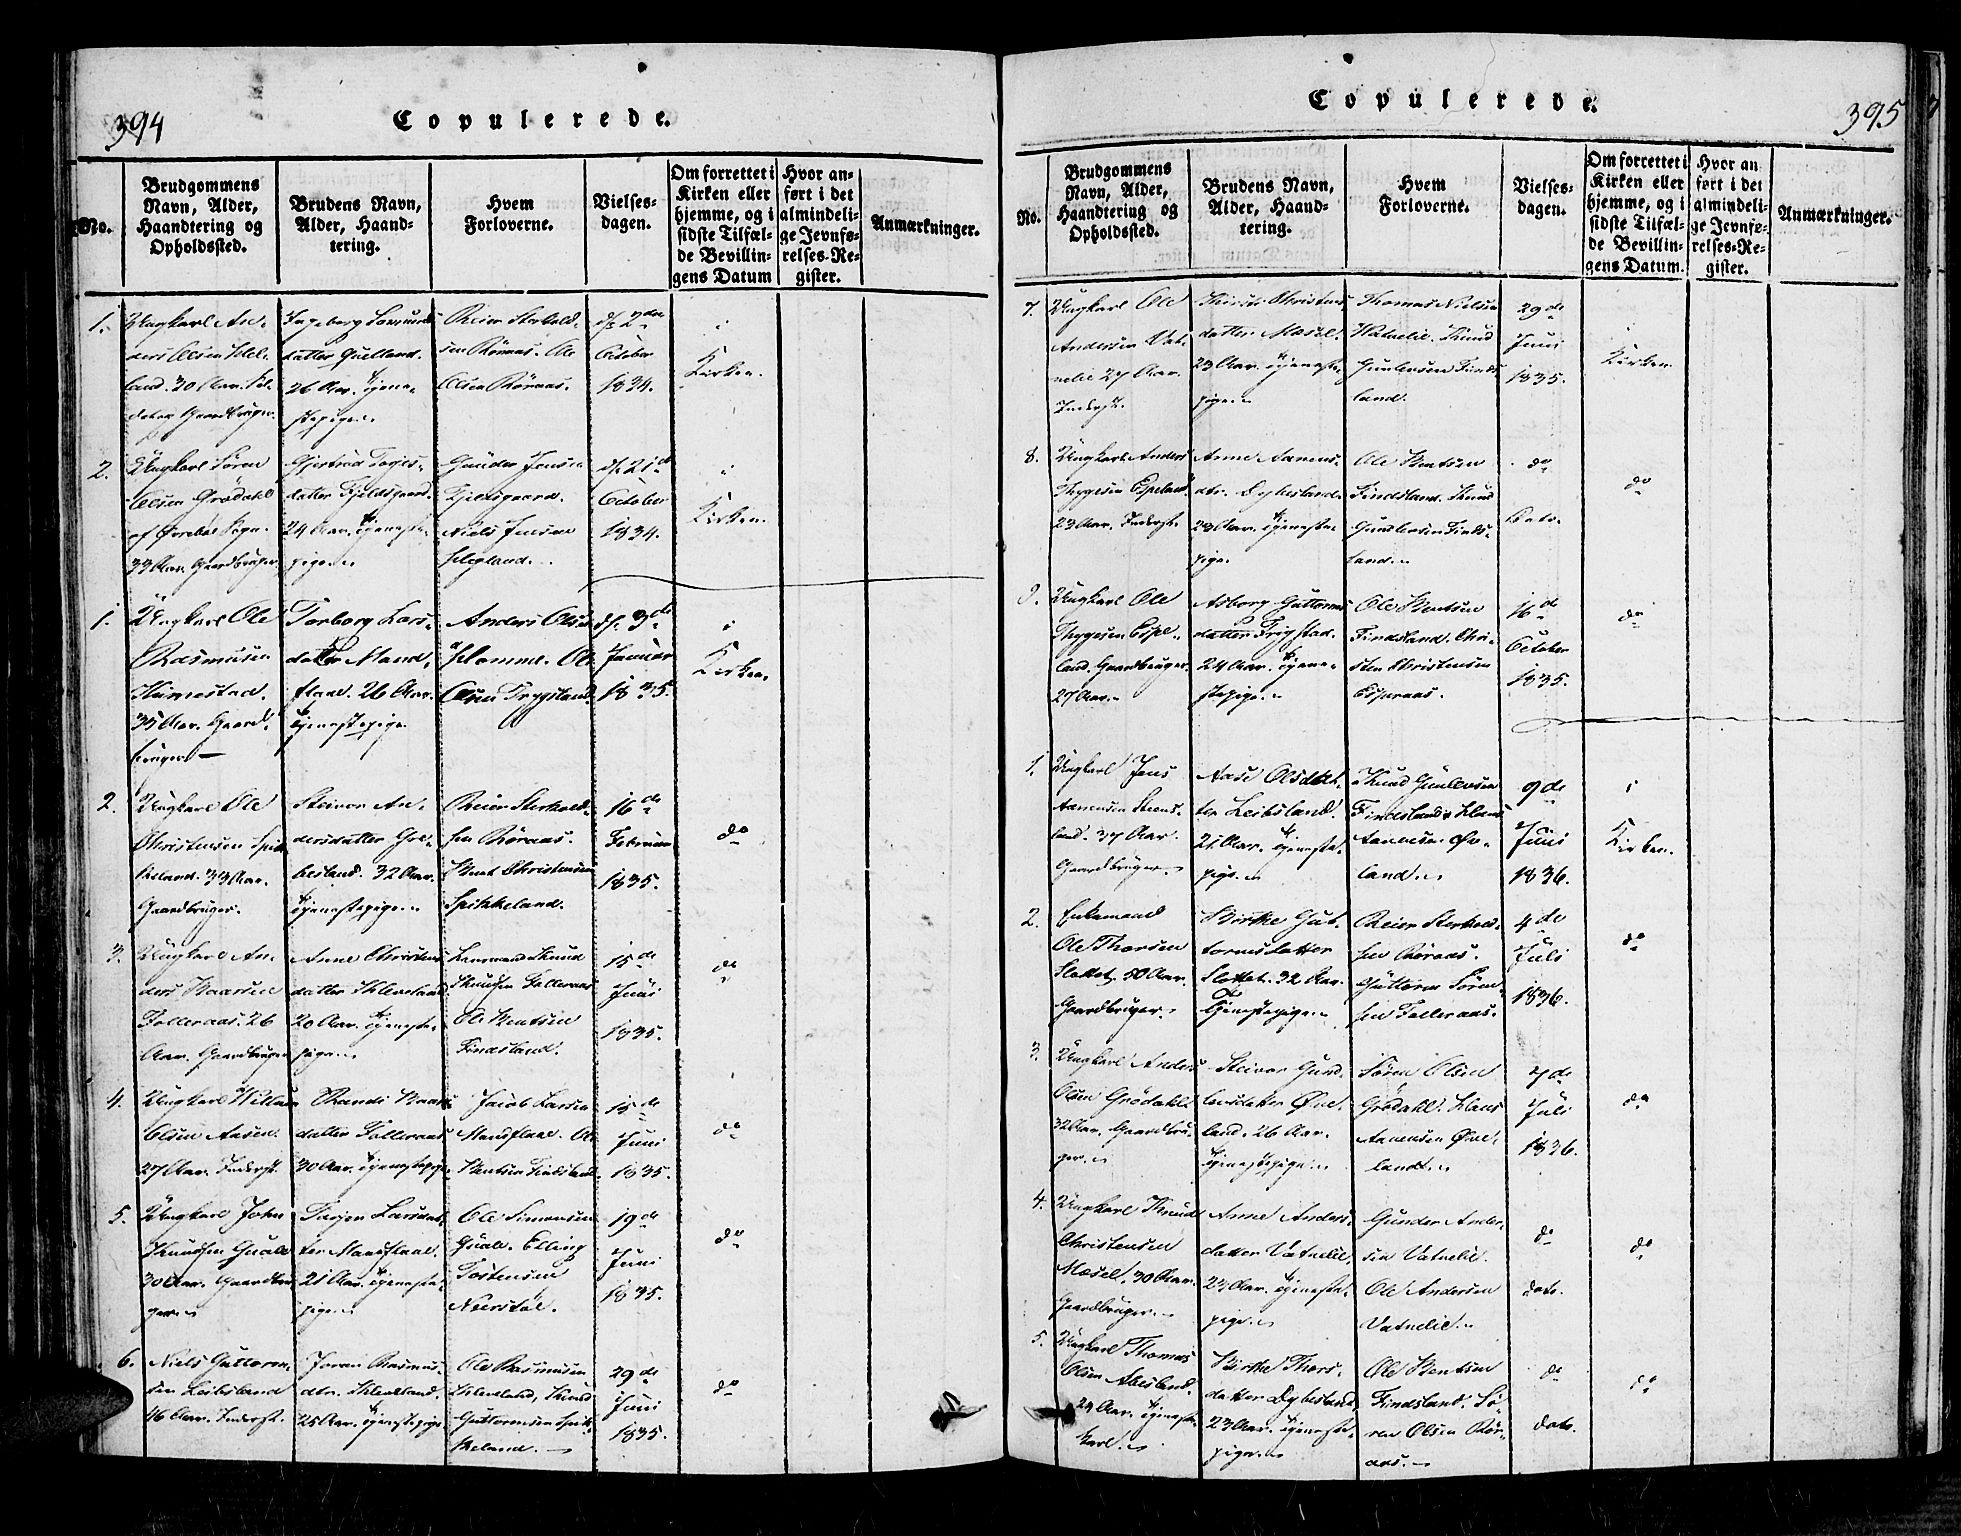 394
Copulerede.
No.
Brudgommens Navn, Alder, Haandtering og Opholdssted.
Brudens Navn, Alder, Haandtering.
Hvem Forloverne.
Vielses-dagen.
Om forrettet i Kirken eller hjemme, og i sidste Tilfælde Bevillingens Datum
Hvor anført i det almindelige Jevnførelses-Register.
Anmærkninger.
1.
Ungkarl An-
ders Olsen
land. 30 Aar.
Gaardbruger.
Ingeborg
datter Quelland.
26 Aar. Tjene-
stepige.
Reier Sterkold-
sen Røraas. Ole
Olsen Røraas.
d. 2den
October
1834.
i
Kirken.
2.
Ungkarl Søren
Olsen Grødahl
af
33 Aar. Gaardbruger.
Gjertrud Tarjes-
datter Fjeldsgaard.
24 Aar. Tjeneste-
pige.
Gunder Jensen
Fjeldsgaard.
Niels Jensen
d. 21de
October
1834.
i
Kirken.
1.
Ungkarl Ole
Rasmusen
35 Aar. Gaard-
bruger
Torborg Lars-
datter Mand-
flaae. 26 Aar.
Tjenestepige
Anders Olsen
Homme. Ole
Olsen Trygstand
d. 3de
Januar
1835.
i
Kirken.
2.
Ungkarl Ole
Christensen Spik-
keland. 33 Aar.
Gaardbruger.
Steinor An-
dersdatter
32 Aar.
Tjenestepige.
Reier Sterkold-
sen Røraas.
Bent Christensen
Spikkeland.
16de
Februar
1835.
do
3.
Ungkarl An-
ders Baarsen
Folleraas. 26
Aar. Gaardbruger
Anne Christens-
datter Kleveland
20 Aar. Tjeneste-
pige.
Lensmand Knud
Knudsen Folleraas
Ole Bentsen
Findsland.
15de
Juni
1835.
do
4.
Ungkarl Willum
Olsen Aasen.
27 Aar. Inderst.
Randi Baars-
datter Folleraas
30 Aar. Tjenestepige.
Jacob Larsen
Mandflaae. Ole
Bentsen Findsland.
15de
Juni
1835.
do
5.
Ungkarl John
Knudsen Quale
30 Aar. Gaardbru-
ger.
Tarjer Larsdat-
ter Mandflaae.
21 Aar. Tjeneste-
pige.
Ole Simonsen
Quale. Elling
Tostensen
19de
Juni
1835.
do
6.
Niels Guttorm-
sen Leibsland
46 Aar. Inderst.
Joran Rasmus-
dtr. Kleveland.
25 Aar. Tjenestepige
Ole Rasmusen
Kleveland, Knud
Guttormsen Spik-
keland.
29de
Juni
1835.
do
395
Copulerede.
No.
Brudgommens Navn, Alder, Haandtering og Opholdssted.
Brudens Navn, Alder, Haandtering.
Hvem Forloverne.
Vielses-dagen.
Om forrettet i Kirken eller hjemme, og i sidste Tilfælde Bevillingens Datum.
Hvor anført i det almindelige Jevnførelses-Register.
Anmærkninger.
7.
Ungkarl Ole
Andersen Vat-
nelie 27 Aar.
Inderst.
Christens-
datter Mæsel.
23 Aar. Tjeneste-
pige.
Thomas Nielsen
Vatnelie. Knud
Gundersen Finds-
land.
29de
Juni
1835.
i
Kirken.
8.
Ungkarl Anders
Thygesen Espeland
23 Aar. Inderst.
Anne Aanens-
dtr. Dybesland.
23 Aar. Tjeneste-
pige.
Ole Bentsen
Findsland. Knud
Gundersen Finds-
land.
do
Dato.
do
9.
Ungkarl Ole
Thygesen Espe-
land. Gaardbruger.
27 Aar.
Asborg Guttorms-
datter Trygstad.
24 Aar. Tjene-
stepige.
Ole Bentsen
Findsland. Chri-
sten Christensen
16de
October
1835.
do
1.
Ungkarl Jens
Aanensen Steens-
land. 37 Aar.
Gaardbruger.
Aase Olsdat-
ter Leibsland.
21 Aar. Tjeneste-
pige.
Knud Gundersen
Findsland. Hans
Aanensen Øve-
land.
9de
Juni
1836.
i
Kirken.
2.
Enkemand
Ole Thorsen
Slottet. 50 Aar.
Gaardbruger.
Birthe Gut-
tormsdatter
Slottet. 32 Aar.
Tjenestepige.
Reier Sterkold-
sen Røraas.
Guttorm Søren-
sen Folleraas.
4de
Juli
1836.
do
3.
Ungkarl Anders
Olsen Grødahl.
32 Aar. Gaardbru-
ger.
Steinor Gund-
Øve-
land. 26 Aar.
Tjenestepige.
Søren Olsen
Grødahl. Hans
Aanensen Øve-
land.
7de
Juli
1836.
do
4.
Ungkarl Knud
Christensen
Mæsel. 30 Aar.
Gaardbruger.
Anne Anders-
datter Vatnelie.
23 Aar. Tjeneste-
pige.
Gunder Ander-
sen Vatnelie.
Ole Andersen
Vatnelie.
do
dato.
do
5.
Ungkarl Thomas
Olsen
24 Aar. Tjeneste-
karl.
Birthe Thors-
datter Dybesland
23 Aar. Tjeneste-
pige.
Ole Bentsen
Findsland. Sø-
ren Olsen Rør-
aas.
do
dato.
do